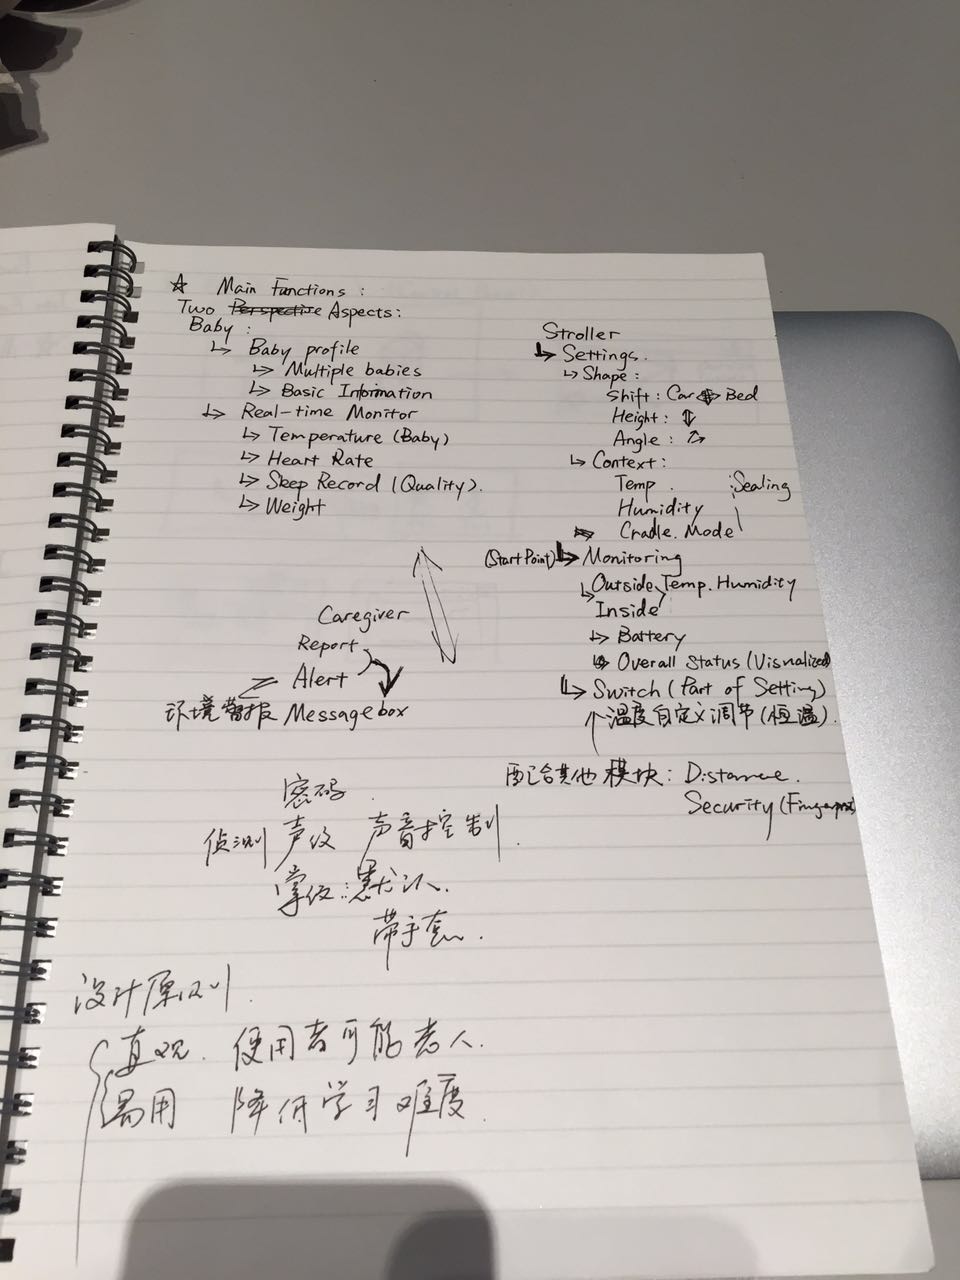 ☆ Main Functions :
Two Perspective Aspects:
Baby :
↳ Baby profile
↳ Multiple babies
↳ Basic Information
↳ Real-time Monitor
↳ Temperature (Baby)
↳ Heart Rate
↳ Sleep Record (Quality).
↳ Weight
Stroller
↳ Settings.
↳ Shape :
Shift : Car ↔ Bed
Height : ↕
Angle :
↳ Context :
Temp . : Sealing
Humidity
Cradle Mode
(Start Point) ↳ Monitoring
↳ Outside Temp. Humidity
Inside
↳ Battery
↳ Overall Status (Visualized)
↳ Switch (Part of Setting)
↑ 温度自定义调节 (恒温).
配合其他模块: Distance.
Security (Fingerprint)
Caregiver
Report
Alert
环境警报 Message box
密码
侦测 声纹 声音控制.
掌纹 : 默认.
带手套.
设计原则.
直观. 使用者可能老人.
易用 降低学习难度.